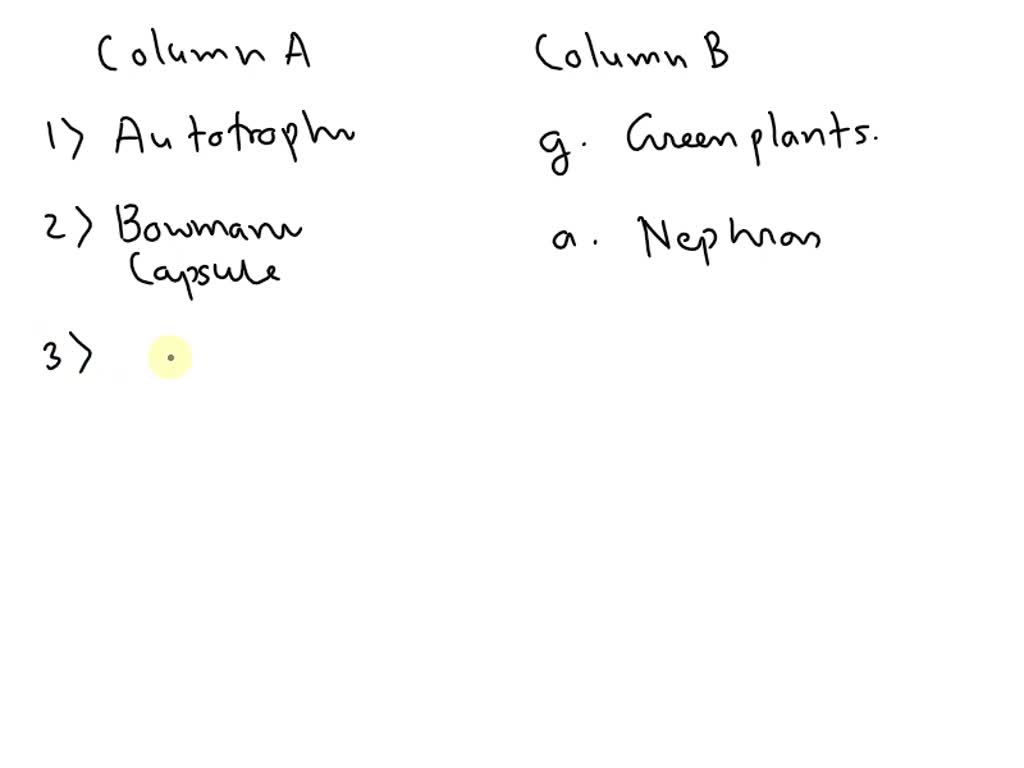 Column A Column B
1) Autotroph g. Green plants.
2) Bowman a. Nephron
Capsule
3)